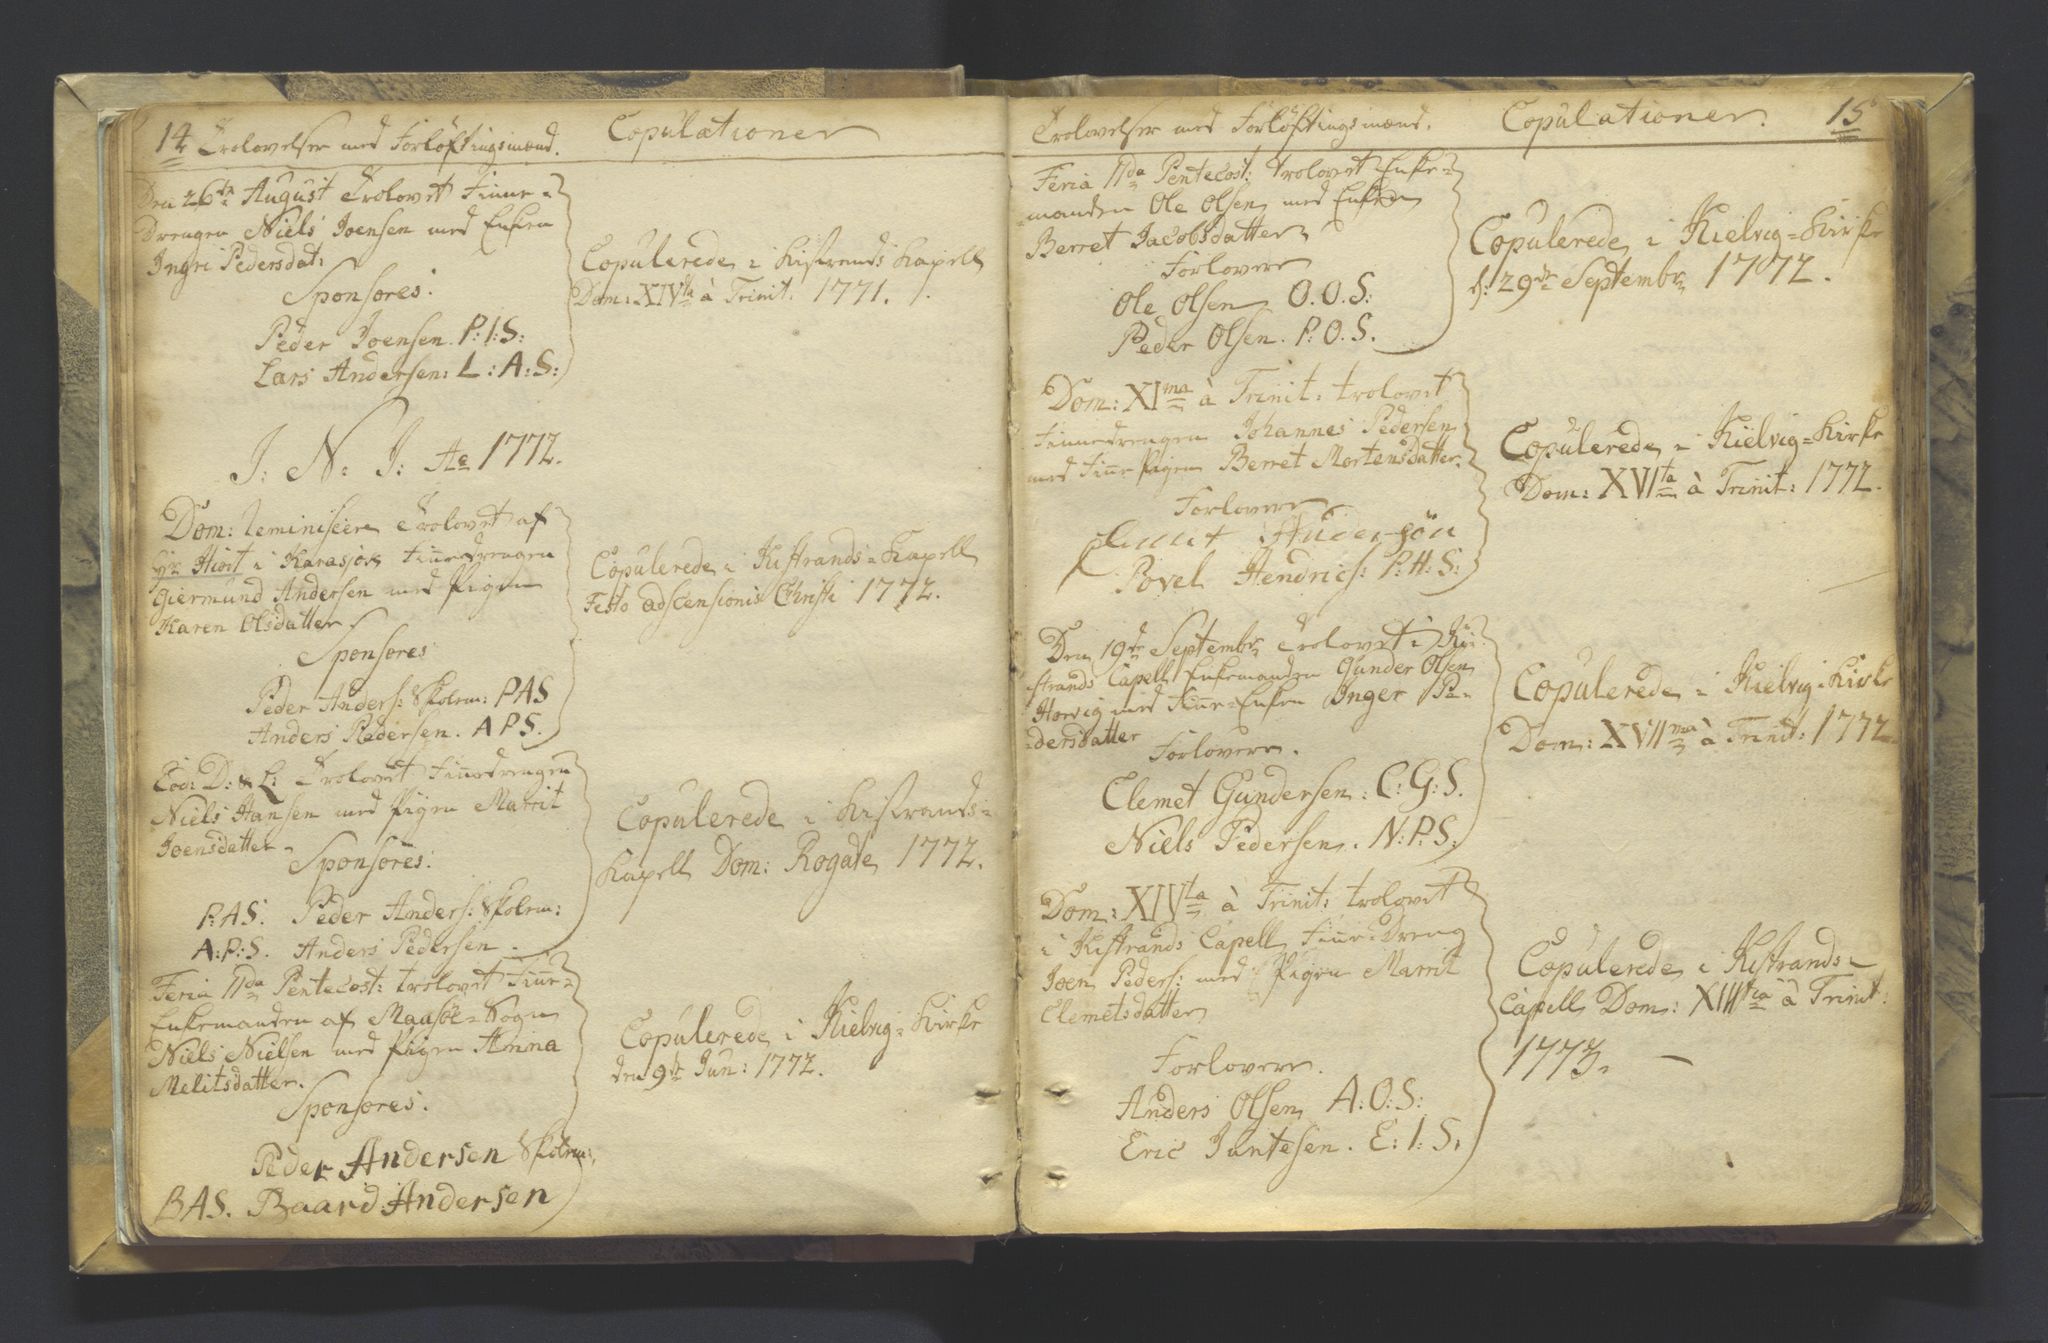 14 Trolovelser med Forløftingsmænd.
Copulationer
Den 26de August Trolovet Finne-
Drengen Niels Joensen med Enken
Ingri Pedersdat:
Sponsores:
Peder Joensen. P:I:S:
Lars Andersen: L:A:S:
Copulerede i Kistrands Kapell
Dom: XIVta à Trinit. 1771.
J: N: J: Ao 1772.
Dom: Reminiscere Trolovet af
Hr Hiort i Karasjok Finnedrengen
Giermund Andersen med Pigen
Karen Olsdatter
Sponsores
Peder Anders: Skolem: PAS
Anders Pedersen. APS.
Copulerede i Kistrands-Kapell
Festo adscensionis Christi 1772.
Eod: D: & L: Trolovet Finnedrengen
Niels Hansen med Pigen Marrit
Joensdatter
Sponsores:
P:AS: Peder Anders: Skolem:
A:P:S. Anders Pedersen.
Copulerede i Kistrands-
Kapell Dom: Rogate 1772.
Feria IIda Pentecost: trolovet Finne-
Enkemanden af Maasøe-Sogn
Niels Nielsen med Pigen Anna
Melitsdatter.
Sponsores.
Peder Andersen Skolem:
BAS. Baard Andersen
Copulerede i Kielvig-Kirke
den 9de Jun: 1772.
Trolovelser med Forløftingsmænd.
Copulationer. 15
Feria IIda Pentecost: trolovet Enke-
manden Ole Olsen med Enken
Berret Jacobsdatter
Forlovere
Ole Olsen O.O.S:
Peder Olsen. P.O.S.
Copulerede i Kielvig-Kirke
d: 29de Septembr 1772.
Dom: XIma à Trinit: trolovet
Finnedrengen Johannes Pedersen
med Finne Pigen Berret Mortensdatter.
Forlovere
Andersøn
Povel Hendrics: P:H:S:
Copulerede i Kielvig-Kirke
Dom: XVIta à Trinit: 1772.
Den 19de Septembr Trolovet i Ki-
strands Capell Enkemanden Gunder Olsen
med Finne-Enken Inger Pe-
dersdatter
Forlovere.
Clemet Gundersen: C:G:S.
Niels Pedersen. N:P:S.
Copulerede i Kielvig-Kirke
Dom: XVIIma à Trinit: 1772
Dom: XIVta à Trinit: trolovet
i Kistrands Capell Finne-Dreng
Joen Peders: med Pigen Marrit
Clemetsdatter
Forlovere.
Anders Olsen A:O:S:
Eric Juntesen. E:I:S.
Copulerede i Kistrands-
Capell Dom: XIIItia à Trinit:
1773.